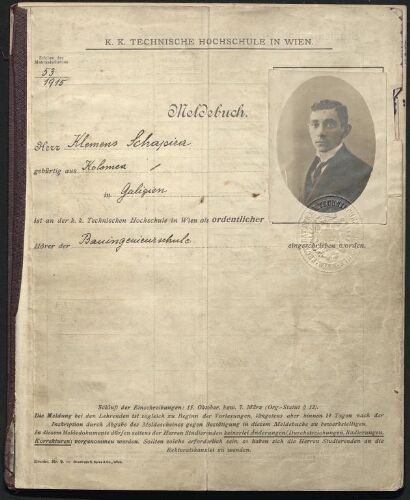 K. K. TECHNISCHE HOCHSCHULE IN WIEN.
Zeichen des
53
1915
Meldebuch.
Herr Klemens Schapira
gebürtig aus Kolomea
in Galizien
ist an der k. k. Technischen Hochschule in Wien als ordentlicher
Hörer der Bauingenieurschule eingeschrieben worden.
Schluß der Einschreibungen: 15. Oktober, bzw. 7. März (Org.-Statut § 12).
Die Meldung bei den Lehrenden ist sogleich zu Beginn der Vorlesungen, längstens aber binnen 14 Tagen nach der
Inskription durch Abgabe des Meldescheines gegen Bestätigung in diesem Meldebuche zu bewerkstelligen.
In diesem Meldedokumente dürfen seitens der Herren Studierenden keinerlei Änderungen (Durchstreichungen, Radierungen,
Korrekturen) vorgenommen werden. Sollten solche erforderlich sein, so haben sich die Herren Studierenden an die
Rektoratskanzlei zu wenden.